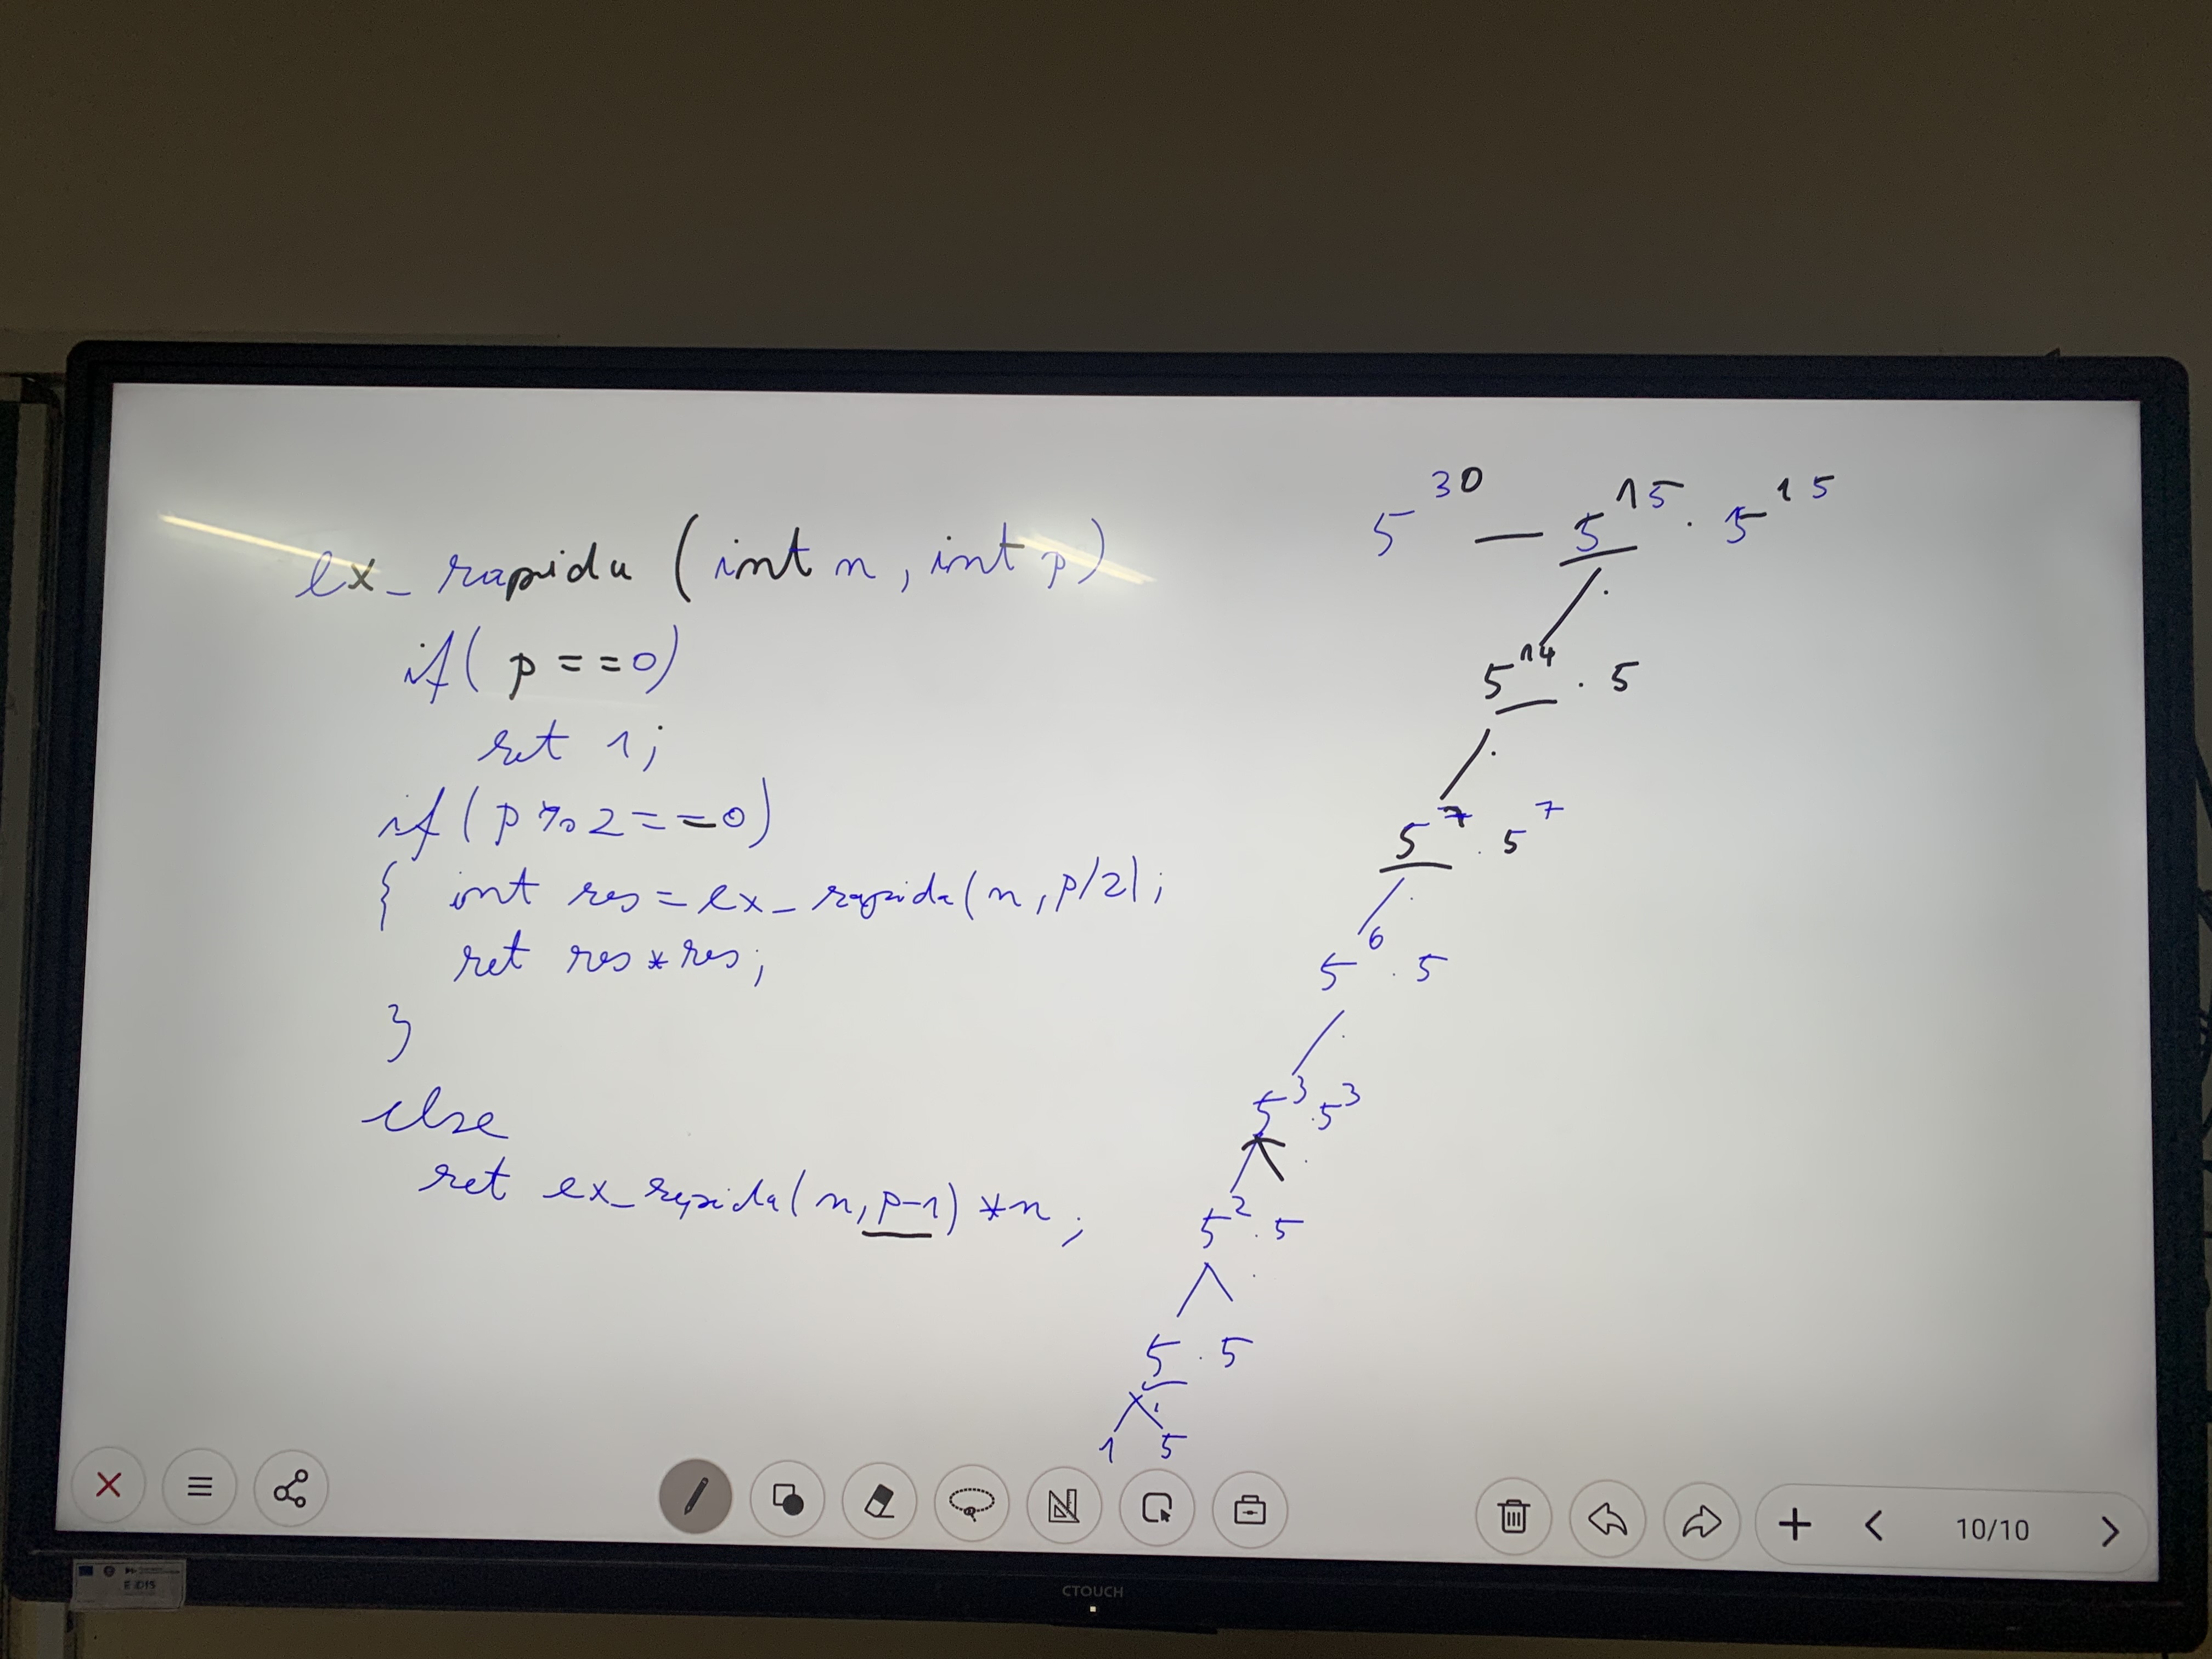 ex_rapida (int n, int p)
if( p ==0)
ret 1;
if( p%2==0)
{ int res=ex_rapida(n,p/2);
ret res*res;
}
else
ret ex_rapida(n,p-1) *n;
5³⁰ — 5¹⁵ . 5¹⁵
5¹⁴ . 5
5⁷ . 5⁷
5⁶ . 5
5³ . 5³
5² . 5
5 . 5
1 5
10/10
CTOUCH